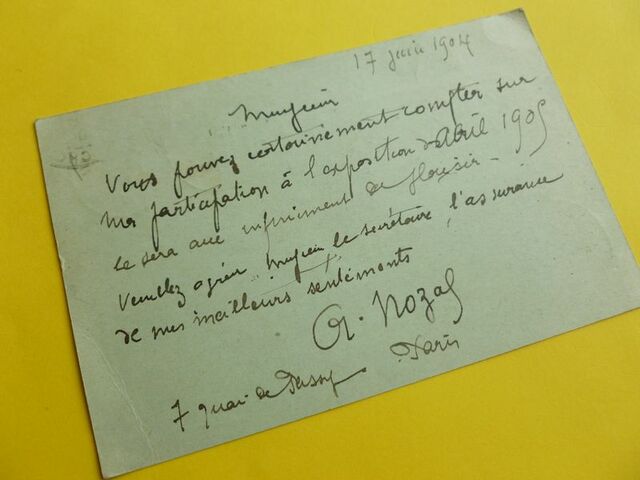 17 juin 1904
Monsieur
Vous pouvez certainement compter sur
ma participation à l'exposition d'Abril 1905
ce sera avec infiniment de plaisir -
Veuillez agréer Monsieur le secrétaire l'assurance
de mes meilleurs sentiments
A. Nozal
7 quai de Passy Paris